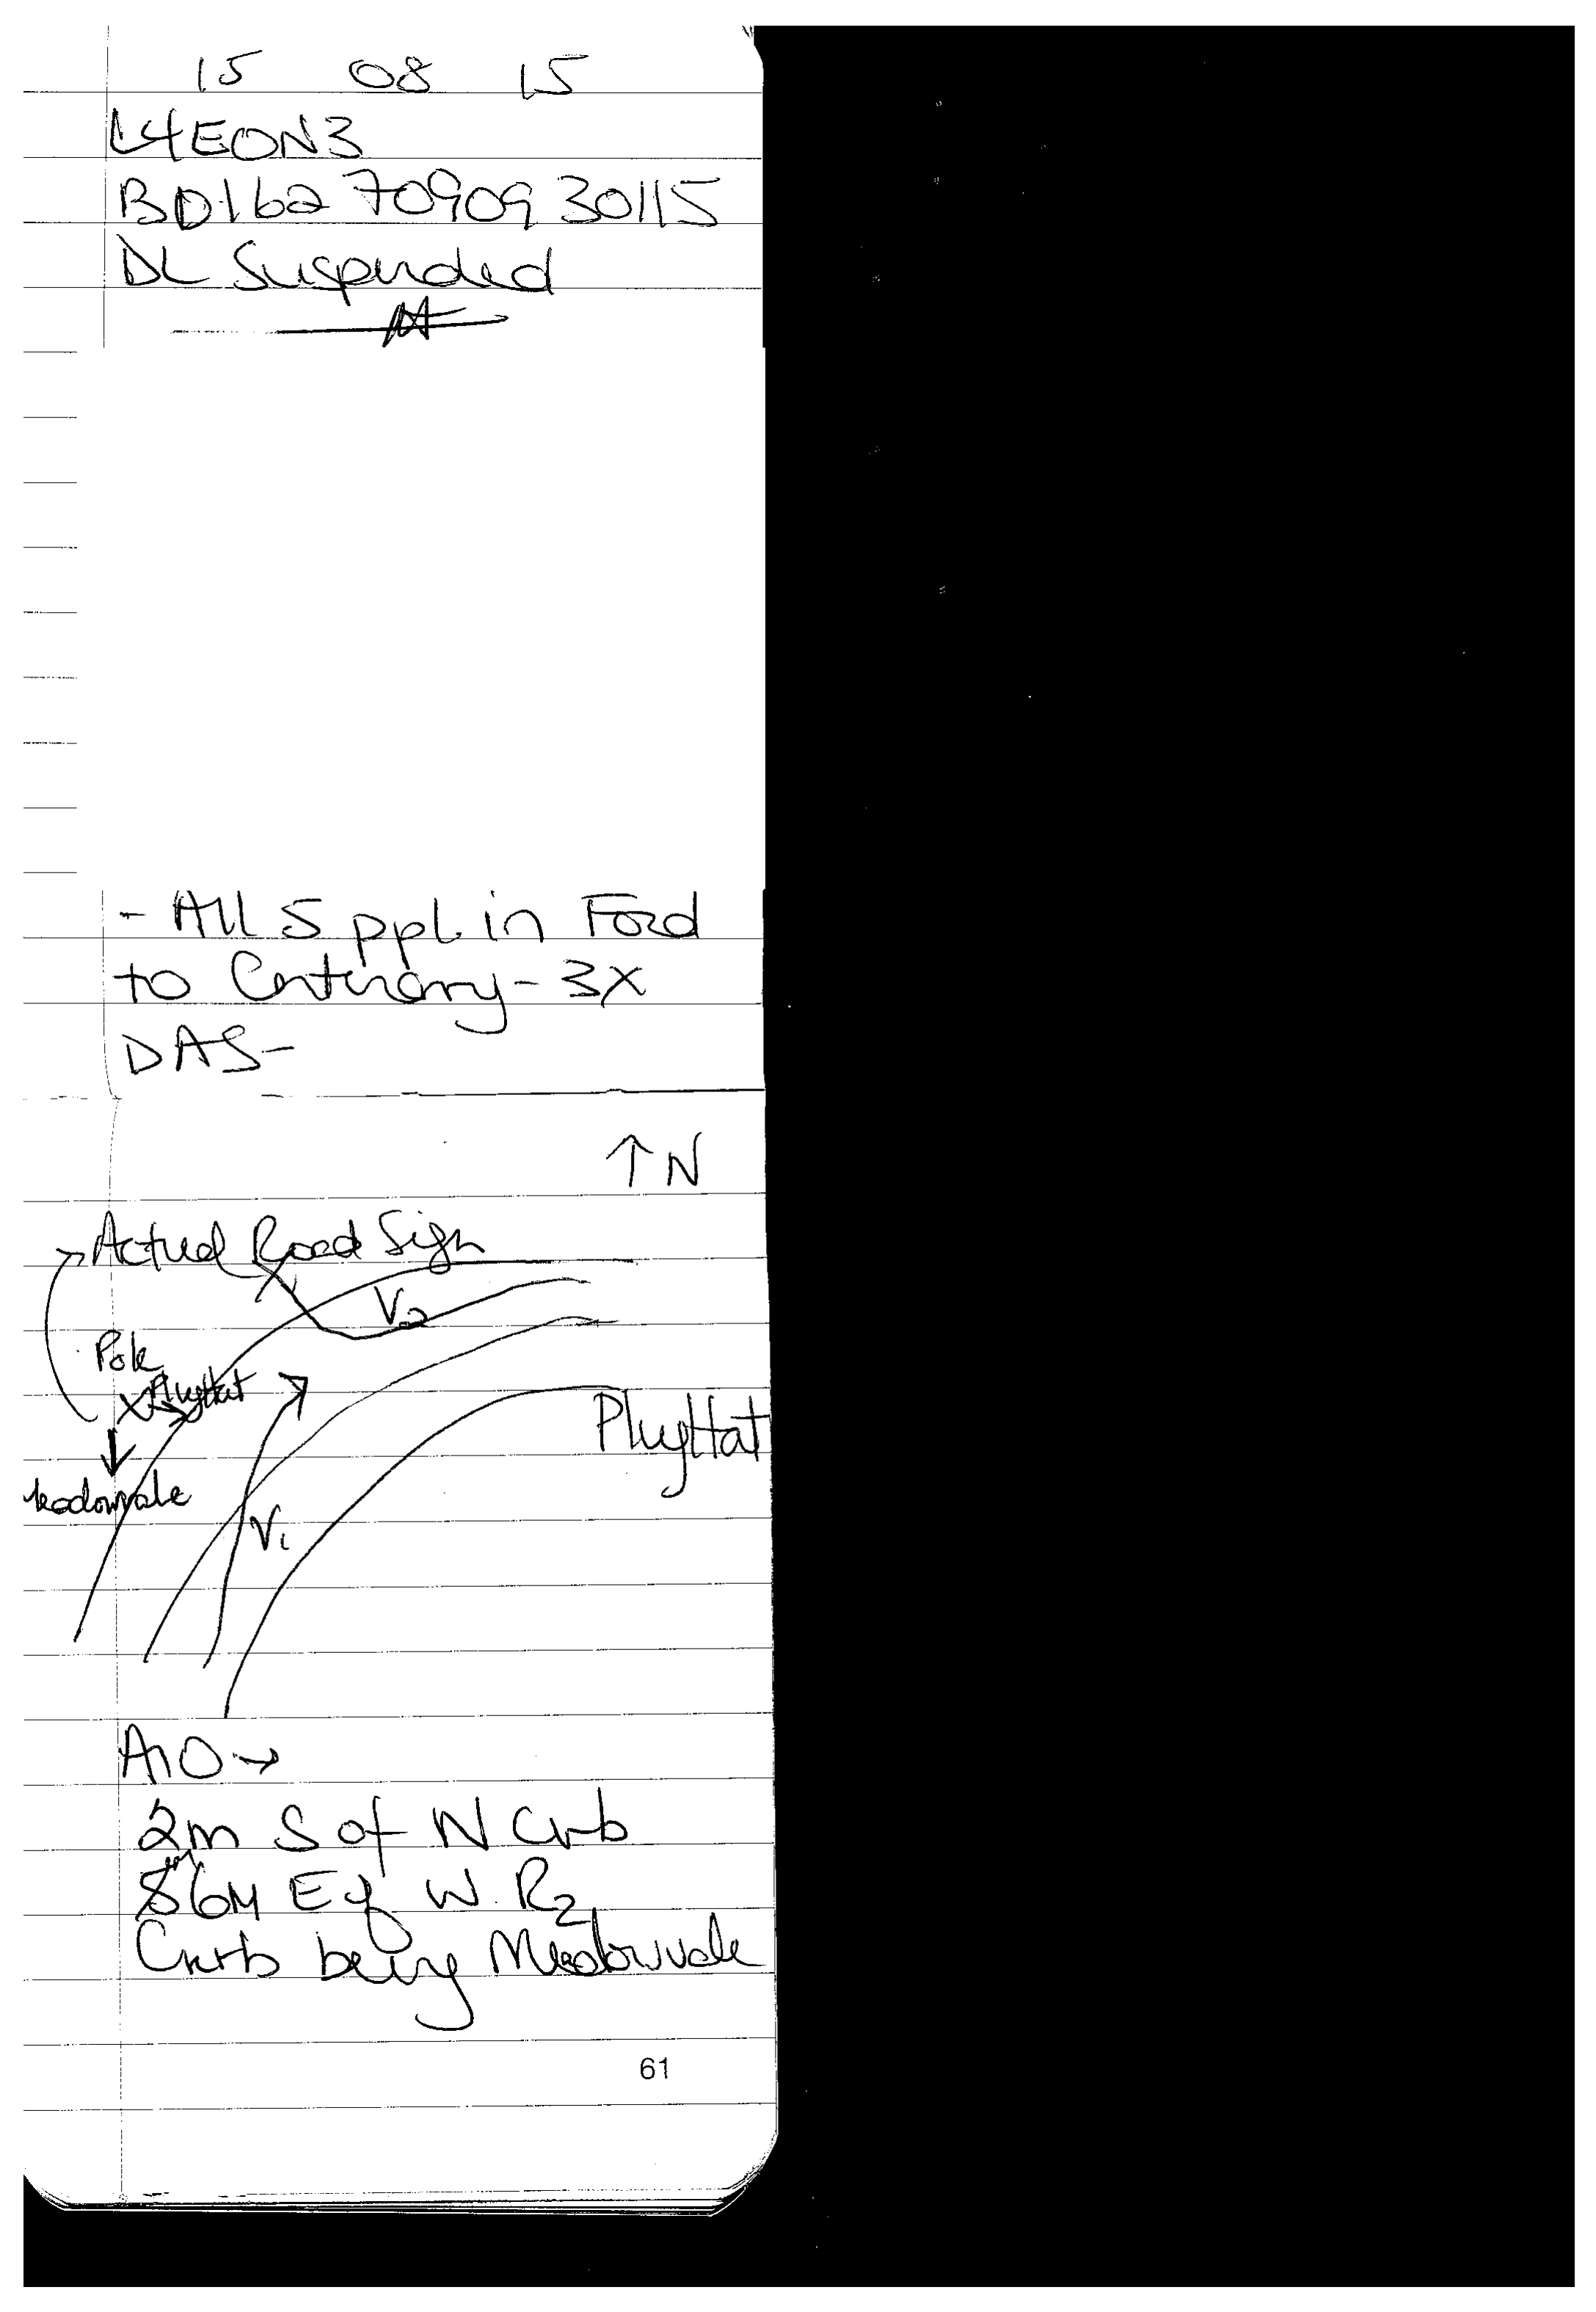 15 08 15
L4EON3
BD162 70909 30115
DL Suspended
- All 5 ppl. in Ford
to Centenary - 3X
DAS-
↑N
Actual Road Sign
V2
Pole
X
PlugHat
V1
AIO →
2m S of N Curb
86m E of W. R2
Curb being Meadowvale
61